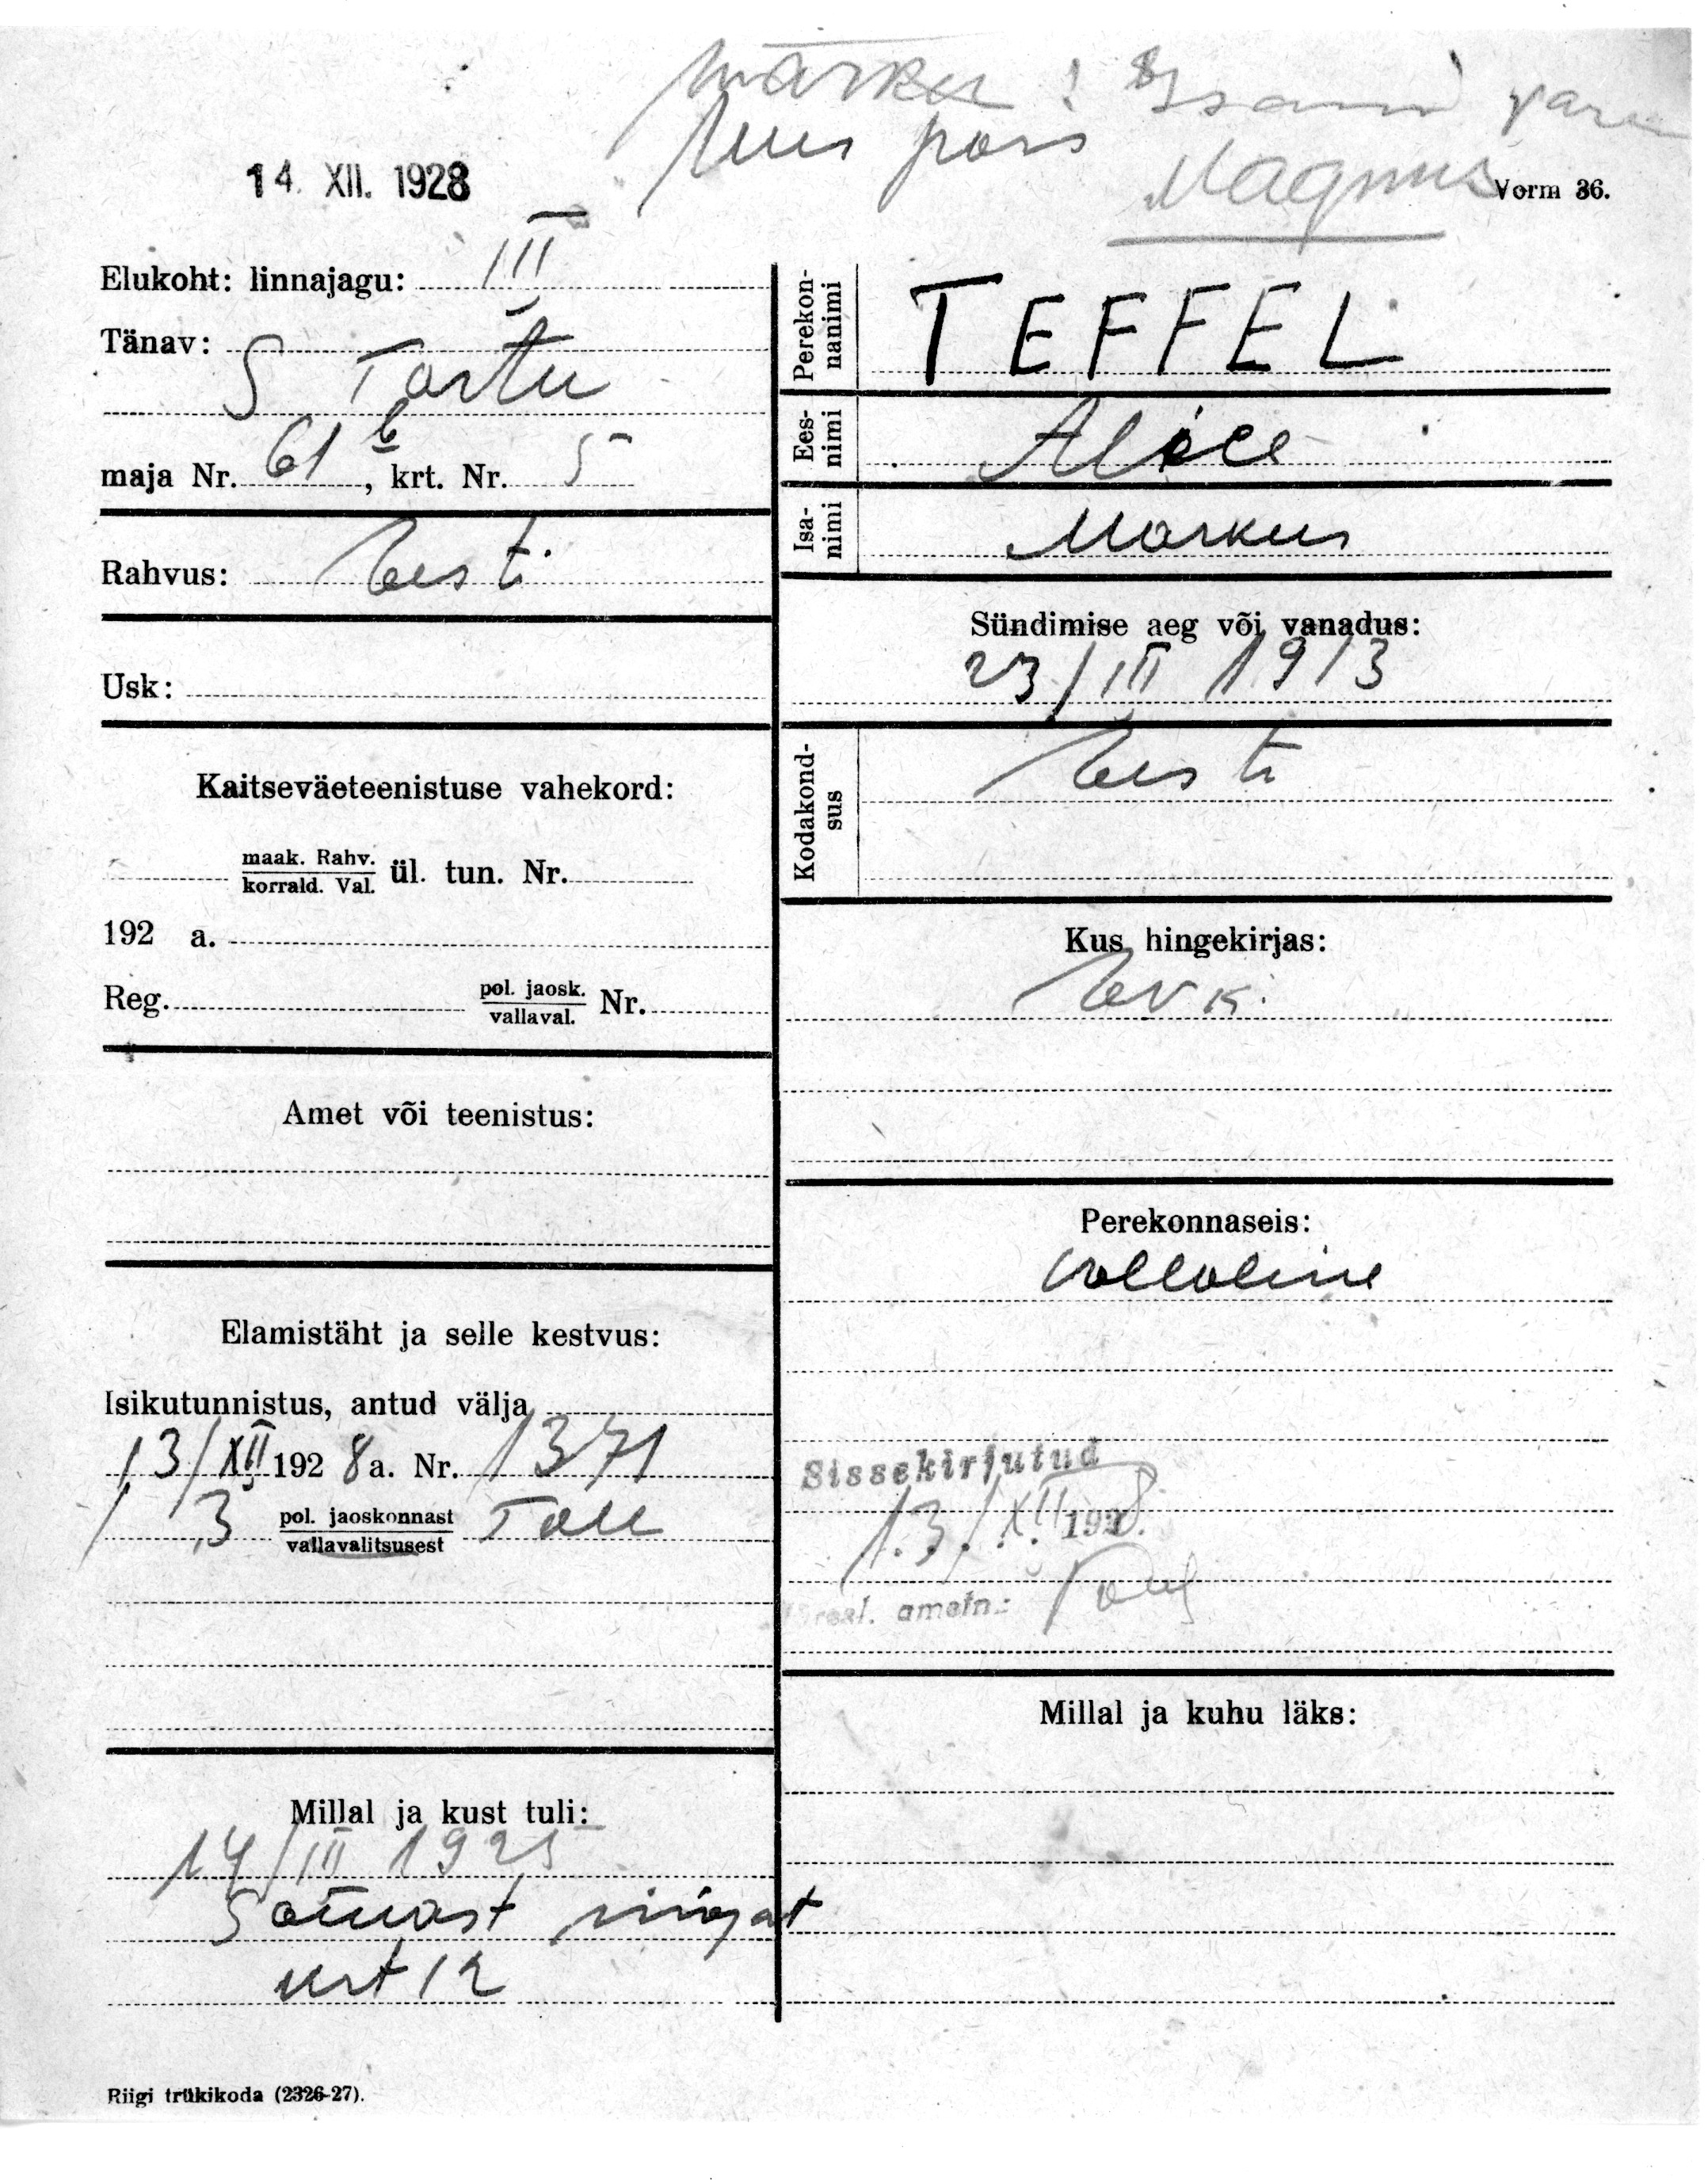 Märkus: Isanimi
uus pass
Magnus
14. XII. 1928
Vorm 36.
Elukoht: linnajagu: III
Tänav:
S Tartu
maja Nr. 61 b, krt. Nr. 5
Rahvus: Eesti
Usk:
Kaitseväeteenistuse vahekord:
maak. Rahv.
korrald. Val. ül. tun. Nr.
192 a.
Reg. pol. jaosk.
vallaval. Nr.
Amet või teenistus:
Elamistäht ja selle kestvus:
Isikutunnistus, antud välja
13/XII 1928 a. Nr. 1371
3 pol. jaoskonnast
vallavalitsusest Tall
Millal ja kust tuli:
14/III 192
12
Perekon-
nanimi
TEFFEL
Ees-
nimi
Alice
Isa-
nimi
Markus
Sündimise aeg või vanadus:
23/III 1913
Kodakond-
sus
Eesti
Kus hingekirjas:
Perekonnaseis:
vallaline
Sissekirjutud
13/XII 1928.
ametn.:
Millal ja kuhu läks:
Riigi trükikoda (2326-27).